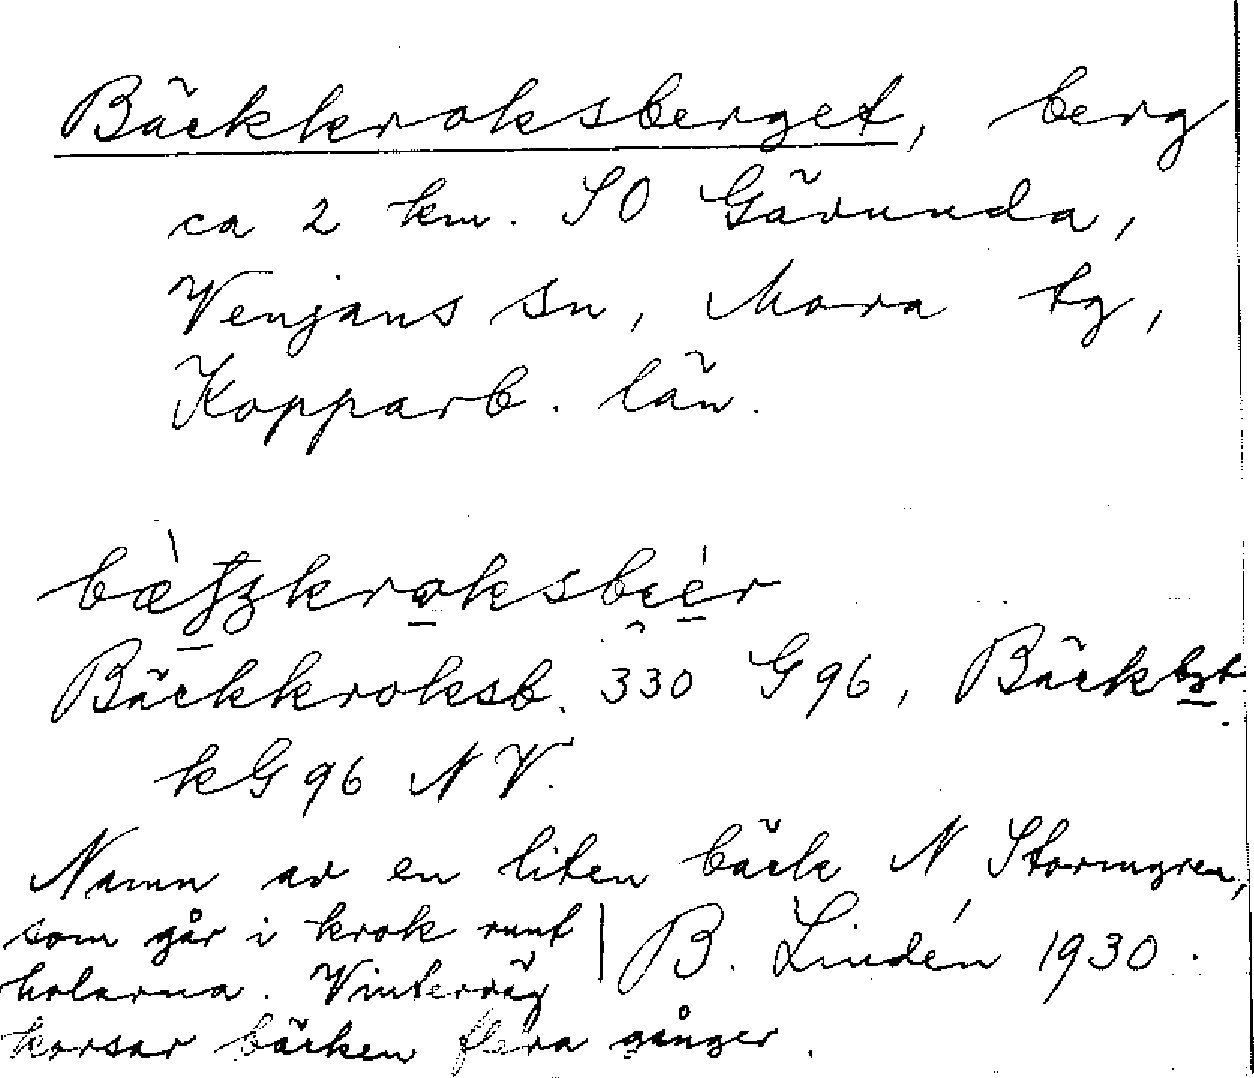 Bäckkroksberget, berg
ca 2 km. SO Gävunda,
Venjans sn, Mora tg,
Kopparb. län.
Bäckkroksb. 330 G96, Bäckbgt
kG96 NV.
Namn av en liten bäck N Stormyren,
som går i krok runt
holarna. Vinterväg
korsar bäcken flera gånger.
B. Lindén 1930.